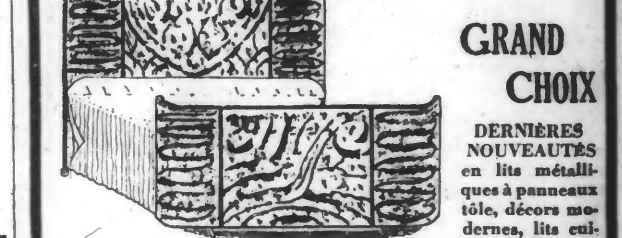 GRAND
CHOIX
DERNIÈRES
NOUVEAUTÉS
en lits métalli-
ques à panneaux
tôle, décors mo-
dernes, lits cui-